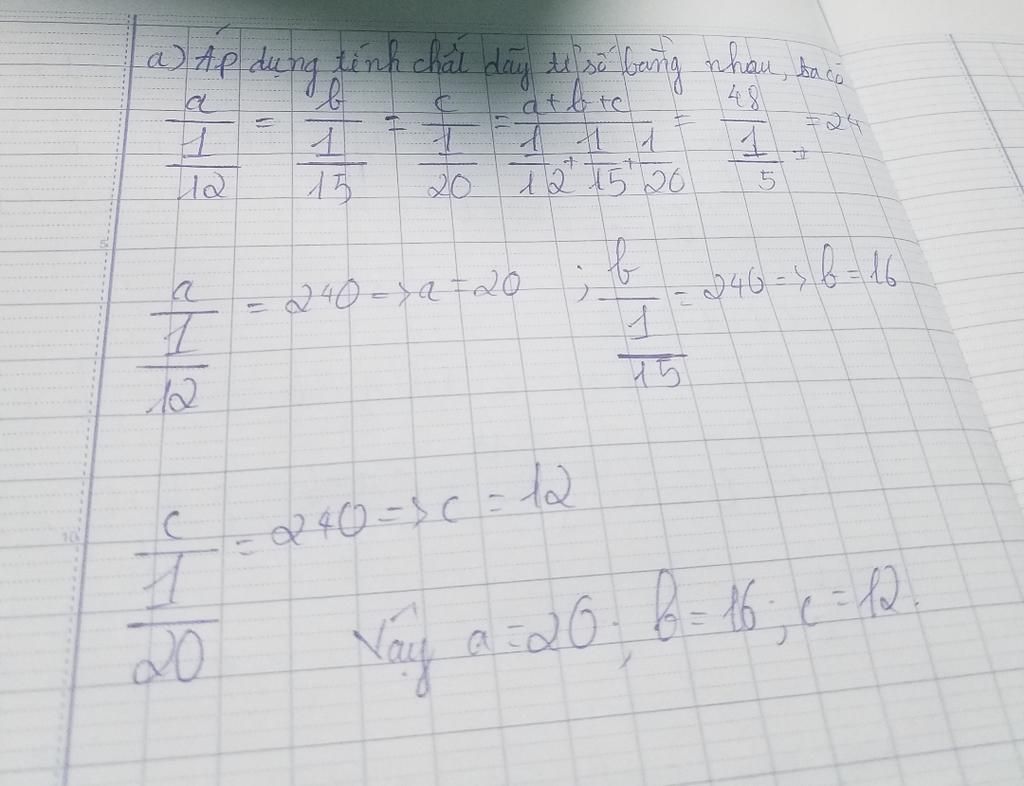 a) Áp dụng tính chất dãy tỉ số bằng nhau, ta có
a/(1/12) = b/(1/15) = c/(1/20) = (a+b+c)/(1/12+1/15+1/20) = 48/(1/5) = 24
a/(1/12) = 240 => a = 20 ; b/(1/15) = 240 => b = 16
c/(1/20) = 240 => c = 12
Vậy a = 20; b = 16; c = 12.